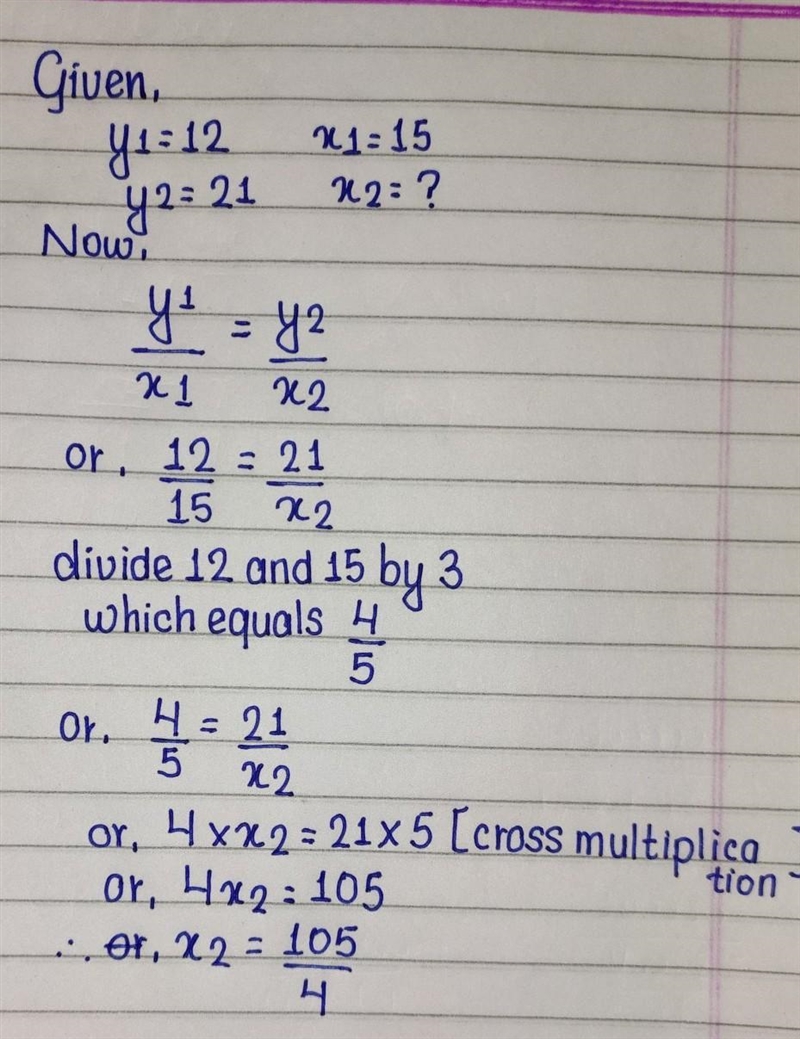 Given,
y1=12 x1=15
y2=21 x2=?
Now,
y1/x1 = y2/x2
or, 12/15 = 21/x2
divide 12 and 15 by 3
which equals 4/5
or, 4/5 = 21/x2
or, 4×x2=21×5 [cross multiplica
tion]
or, 4x2=105
∴ or, x2 = 105/4